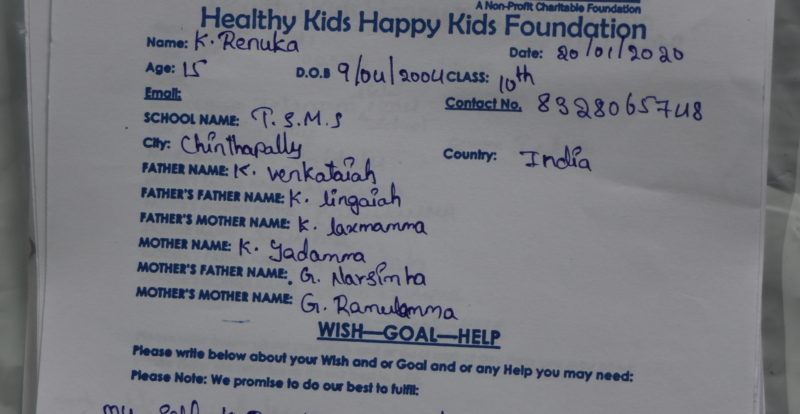 A Non-Profit Charitable Foundation
Healthy Kids Happy Kids Foundation
Name: K. Renuka Date: 20/01/2020
Age: 15 D.O.B 9/04/2004 CLASS: 10th
Email: Contact No. 8328065748
SCHOOL NAME: T.S.M.S
City: Chinthapally Country: India
FATHER NAME: K. venkataiah
FATHER'S FATHER NAME: K. lingaiah
FATHER'S MOTHER NAME: K. laxmamma
MOTHER NAME: K. Yadamma
MOTHER'S FATHER NAME: G. Narsimha
MOTHER'S MOTHER NAME: G. Ramulamma
WISH—GOAL—HELP
Please write below about your Wish and or Goal and or any Help you may need:
Please Note: We promise to do our best to fulfil:
my self K